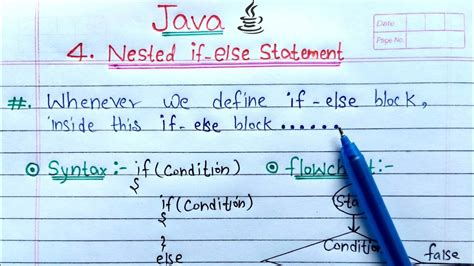 Java
Date
Page No.
4. Nested if-else Statement
#. Whenever we define if-else block,
inside this if-else block......
Syntax :- if(Condition)
{
if(Condition)
{
}
else
flowchart:-
Sta
Condition
false